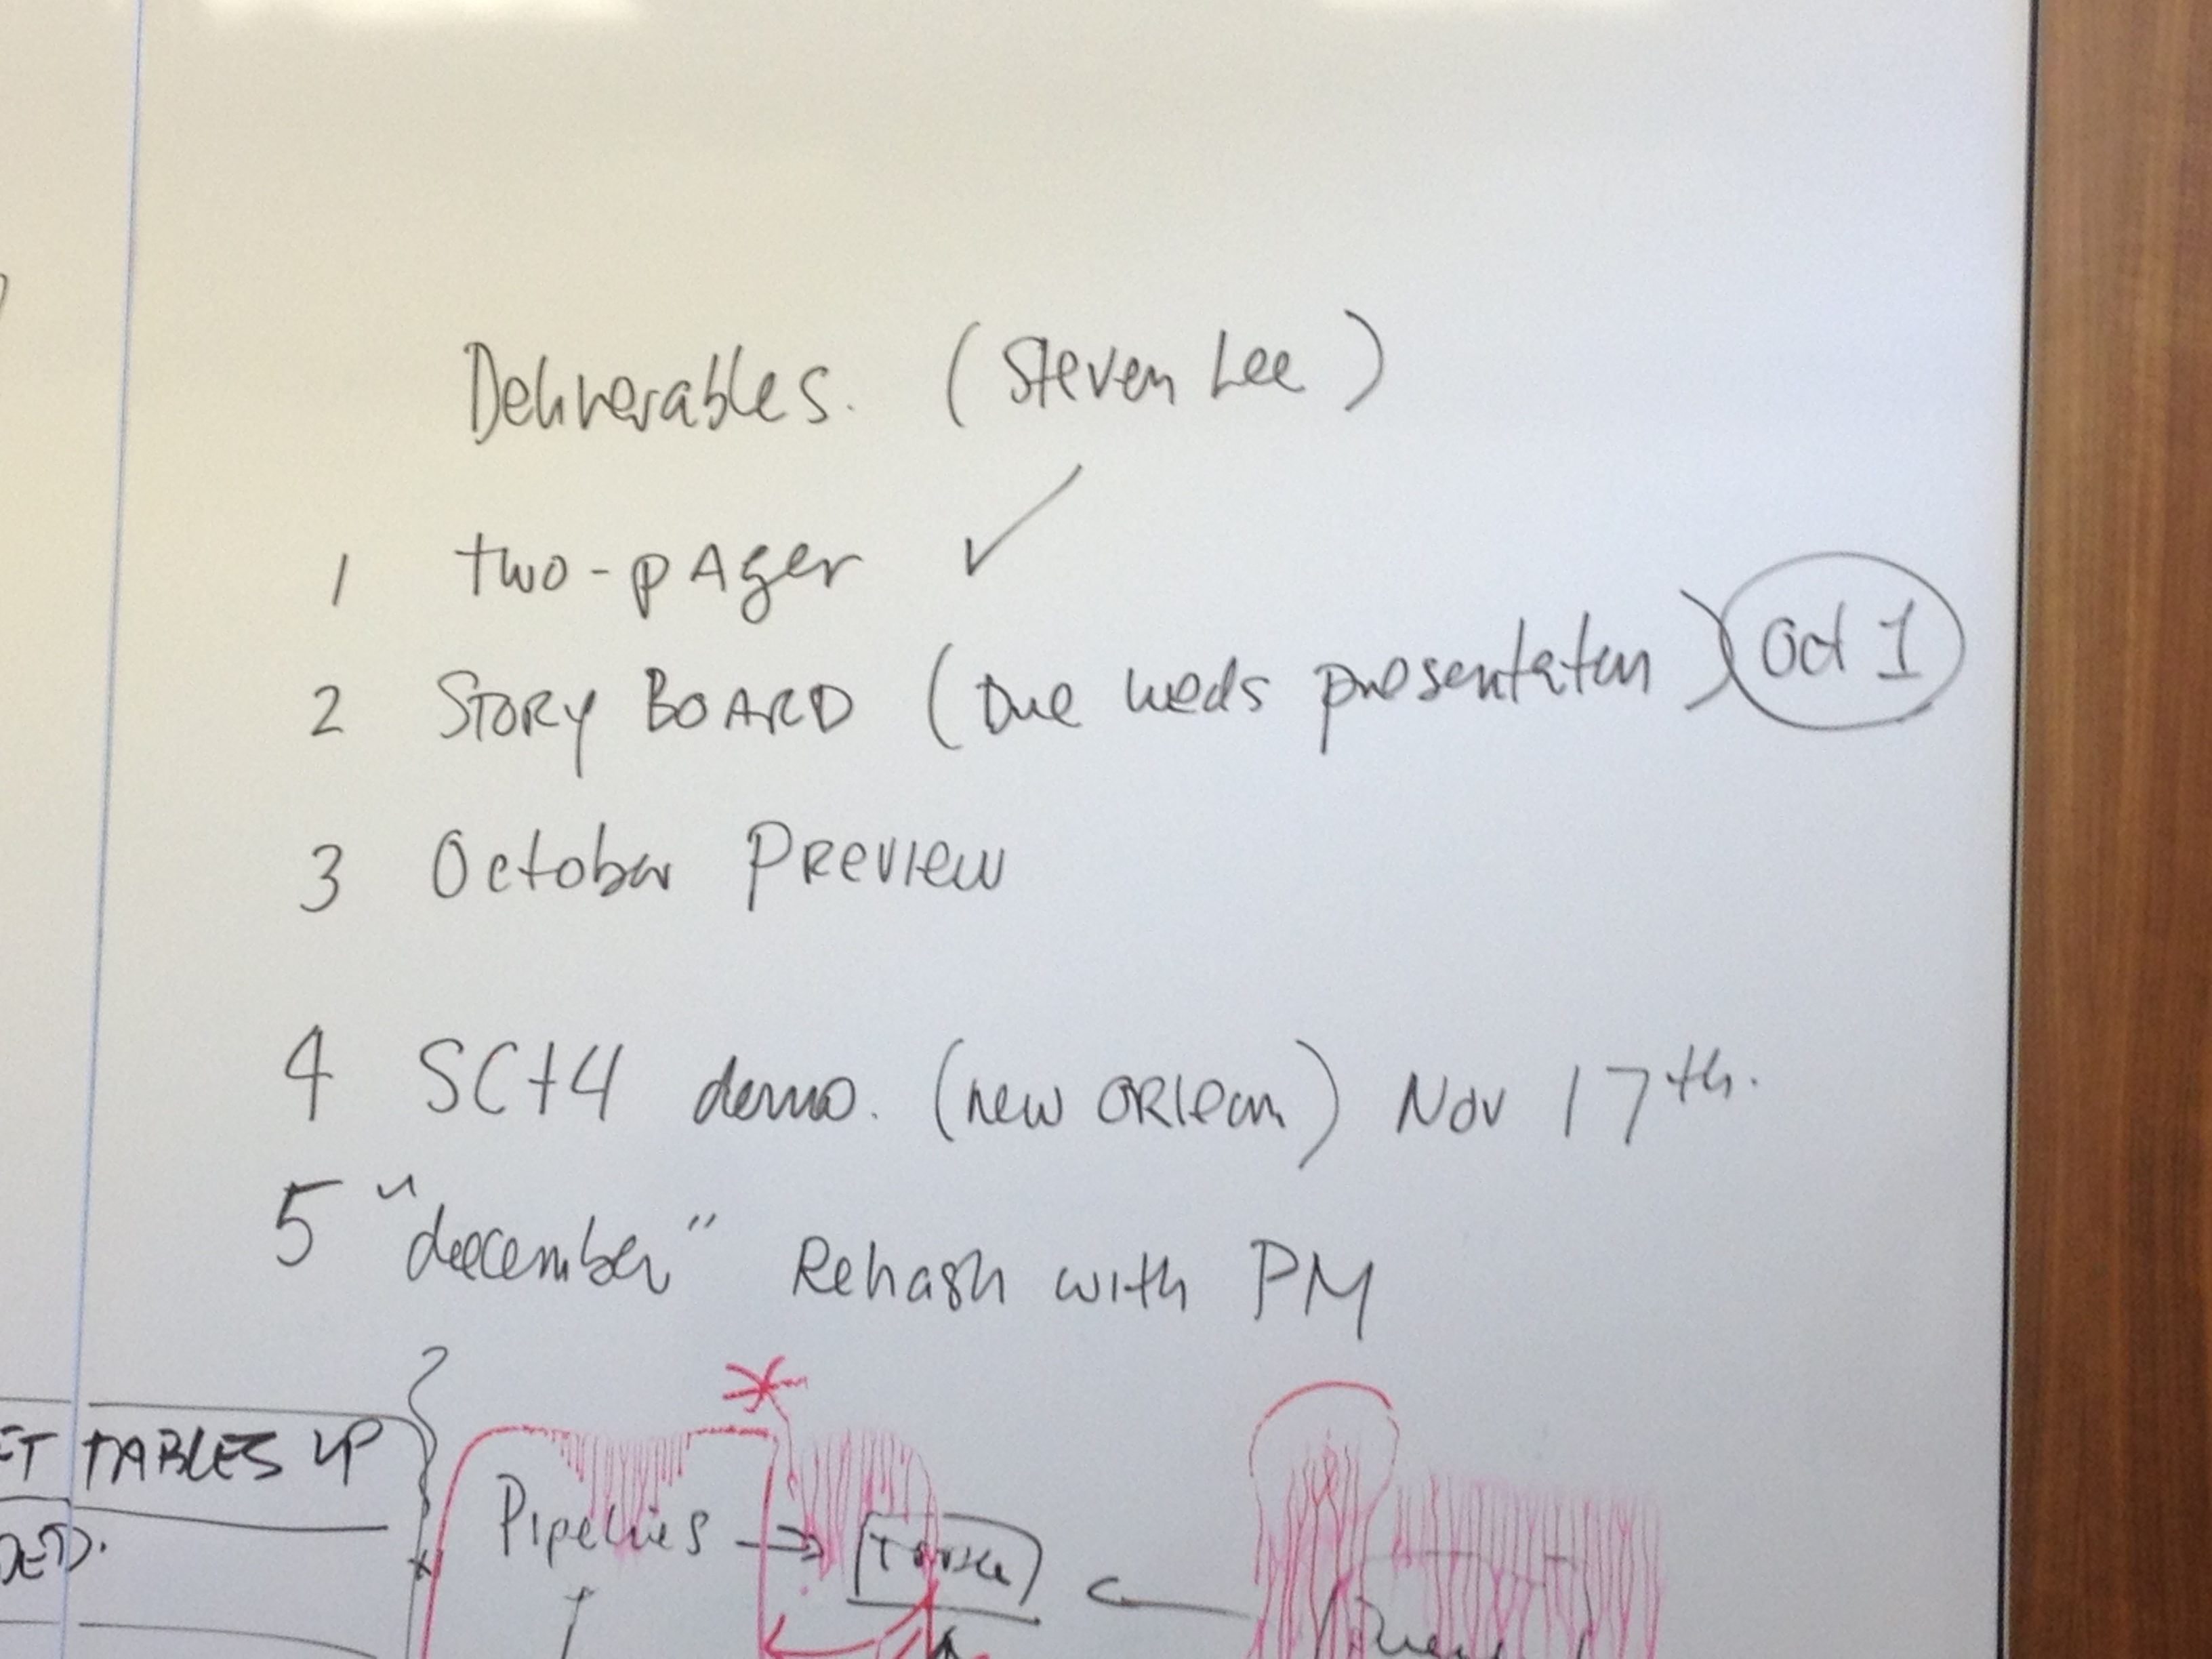 Deliverables. (Steven Lee)
1 two-pAger ✓
2 STORY BOARD (Due weds presentaton) Oct 1
3 October PREVIEW
4 SC14 demo. (new ORlean) Nov 17th.
5 "deecember" Rehash with PM
TABLES UP
Pipelies